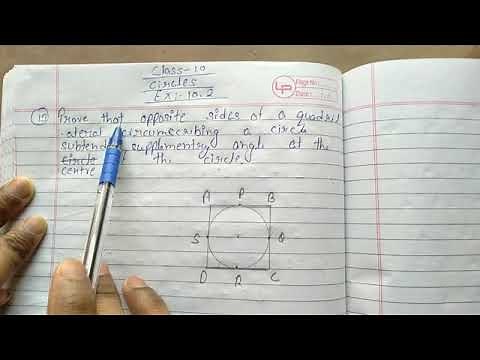 Class-10
Circles
Ex:- 10.2
Page No.
Date:
Prove that opposite sides of a quadril
-ateral circumscribing a circle
subtend supplimentry angle at the
circle of the circle.
centre
A P B
S Q
D R C